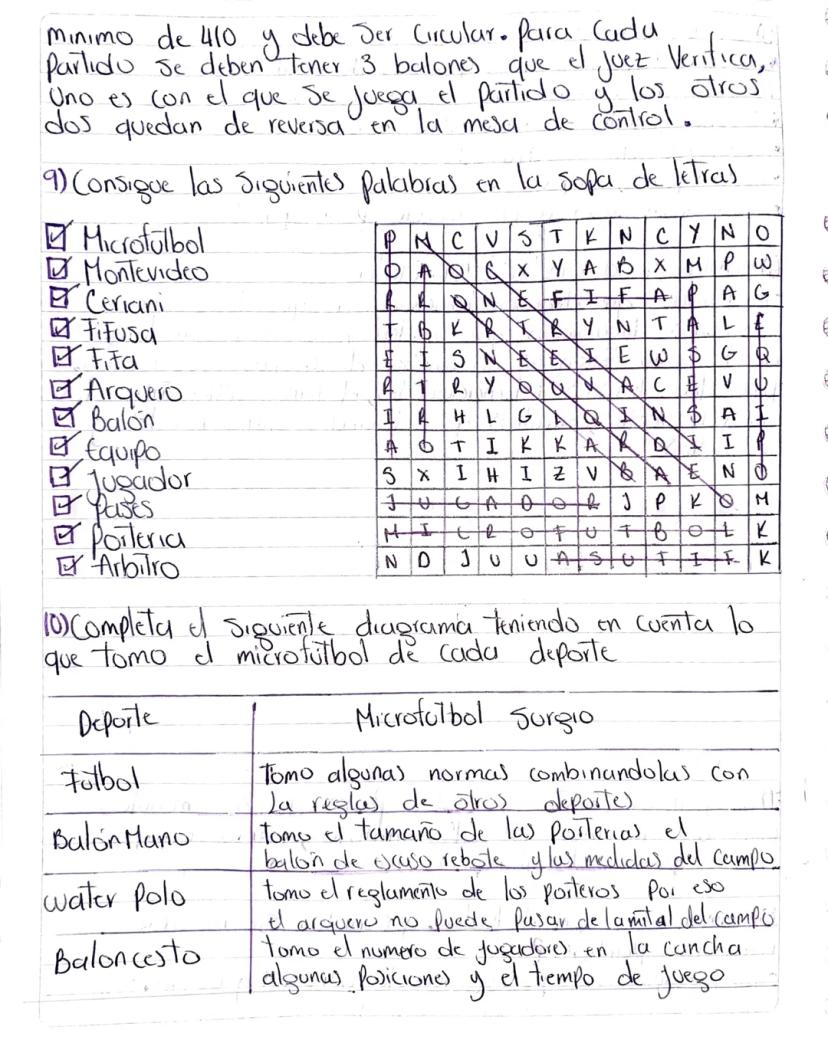 minimo de 410 y debe ser circular. para cada
partido se deben tener 3 balones que el juez verifica,
uno es con el que se juega el partido y los otros
dos quedan de reversa en la mesa de control.
9) Consigue las siguientes palabras en la sopa de letras
Microfútbol
Montevideo
Ceriani
Fifusa
Fifa
Arquero
Balón
Equipo
Jugador
Pases
Porteria
Arbitro
P M C V S T K N C Y N O
O A O C X Y A B X M P W
R R O N E F I F A P A G
T B K R T R Y N T A L E
E I S N E E I E W S G Q
R T R Y O U V A C E V U
I R H L G L Q I N S A I
A O T I K K A R D I I P
S X I H I Z V B A E N O
J U G A D O R J P K O M
M I C R O F U T B O L K
N D J U U A S U F I F K
10) Completa el siguiente diagrama teniendo en cuenta lo
que tomo el microfútbol de cada deporte
Deporte Microfutbol surgio
Fútbol Tomo algunas normas combinandolas con
la reglas de otros deportes
BalónMano tomo el tamaño de las porterias el
balón de escaso rebote y las medidas del campo
water polo tomo el reglamento de los porteros por eso
el arquero no puede pasar de la mital del campo
Baloncesto tomo el numero de jugadores en la cancha
algunas posiciones y el tiempo de juego